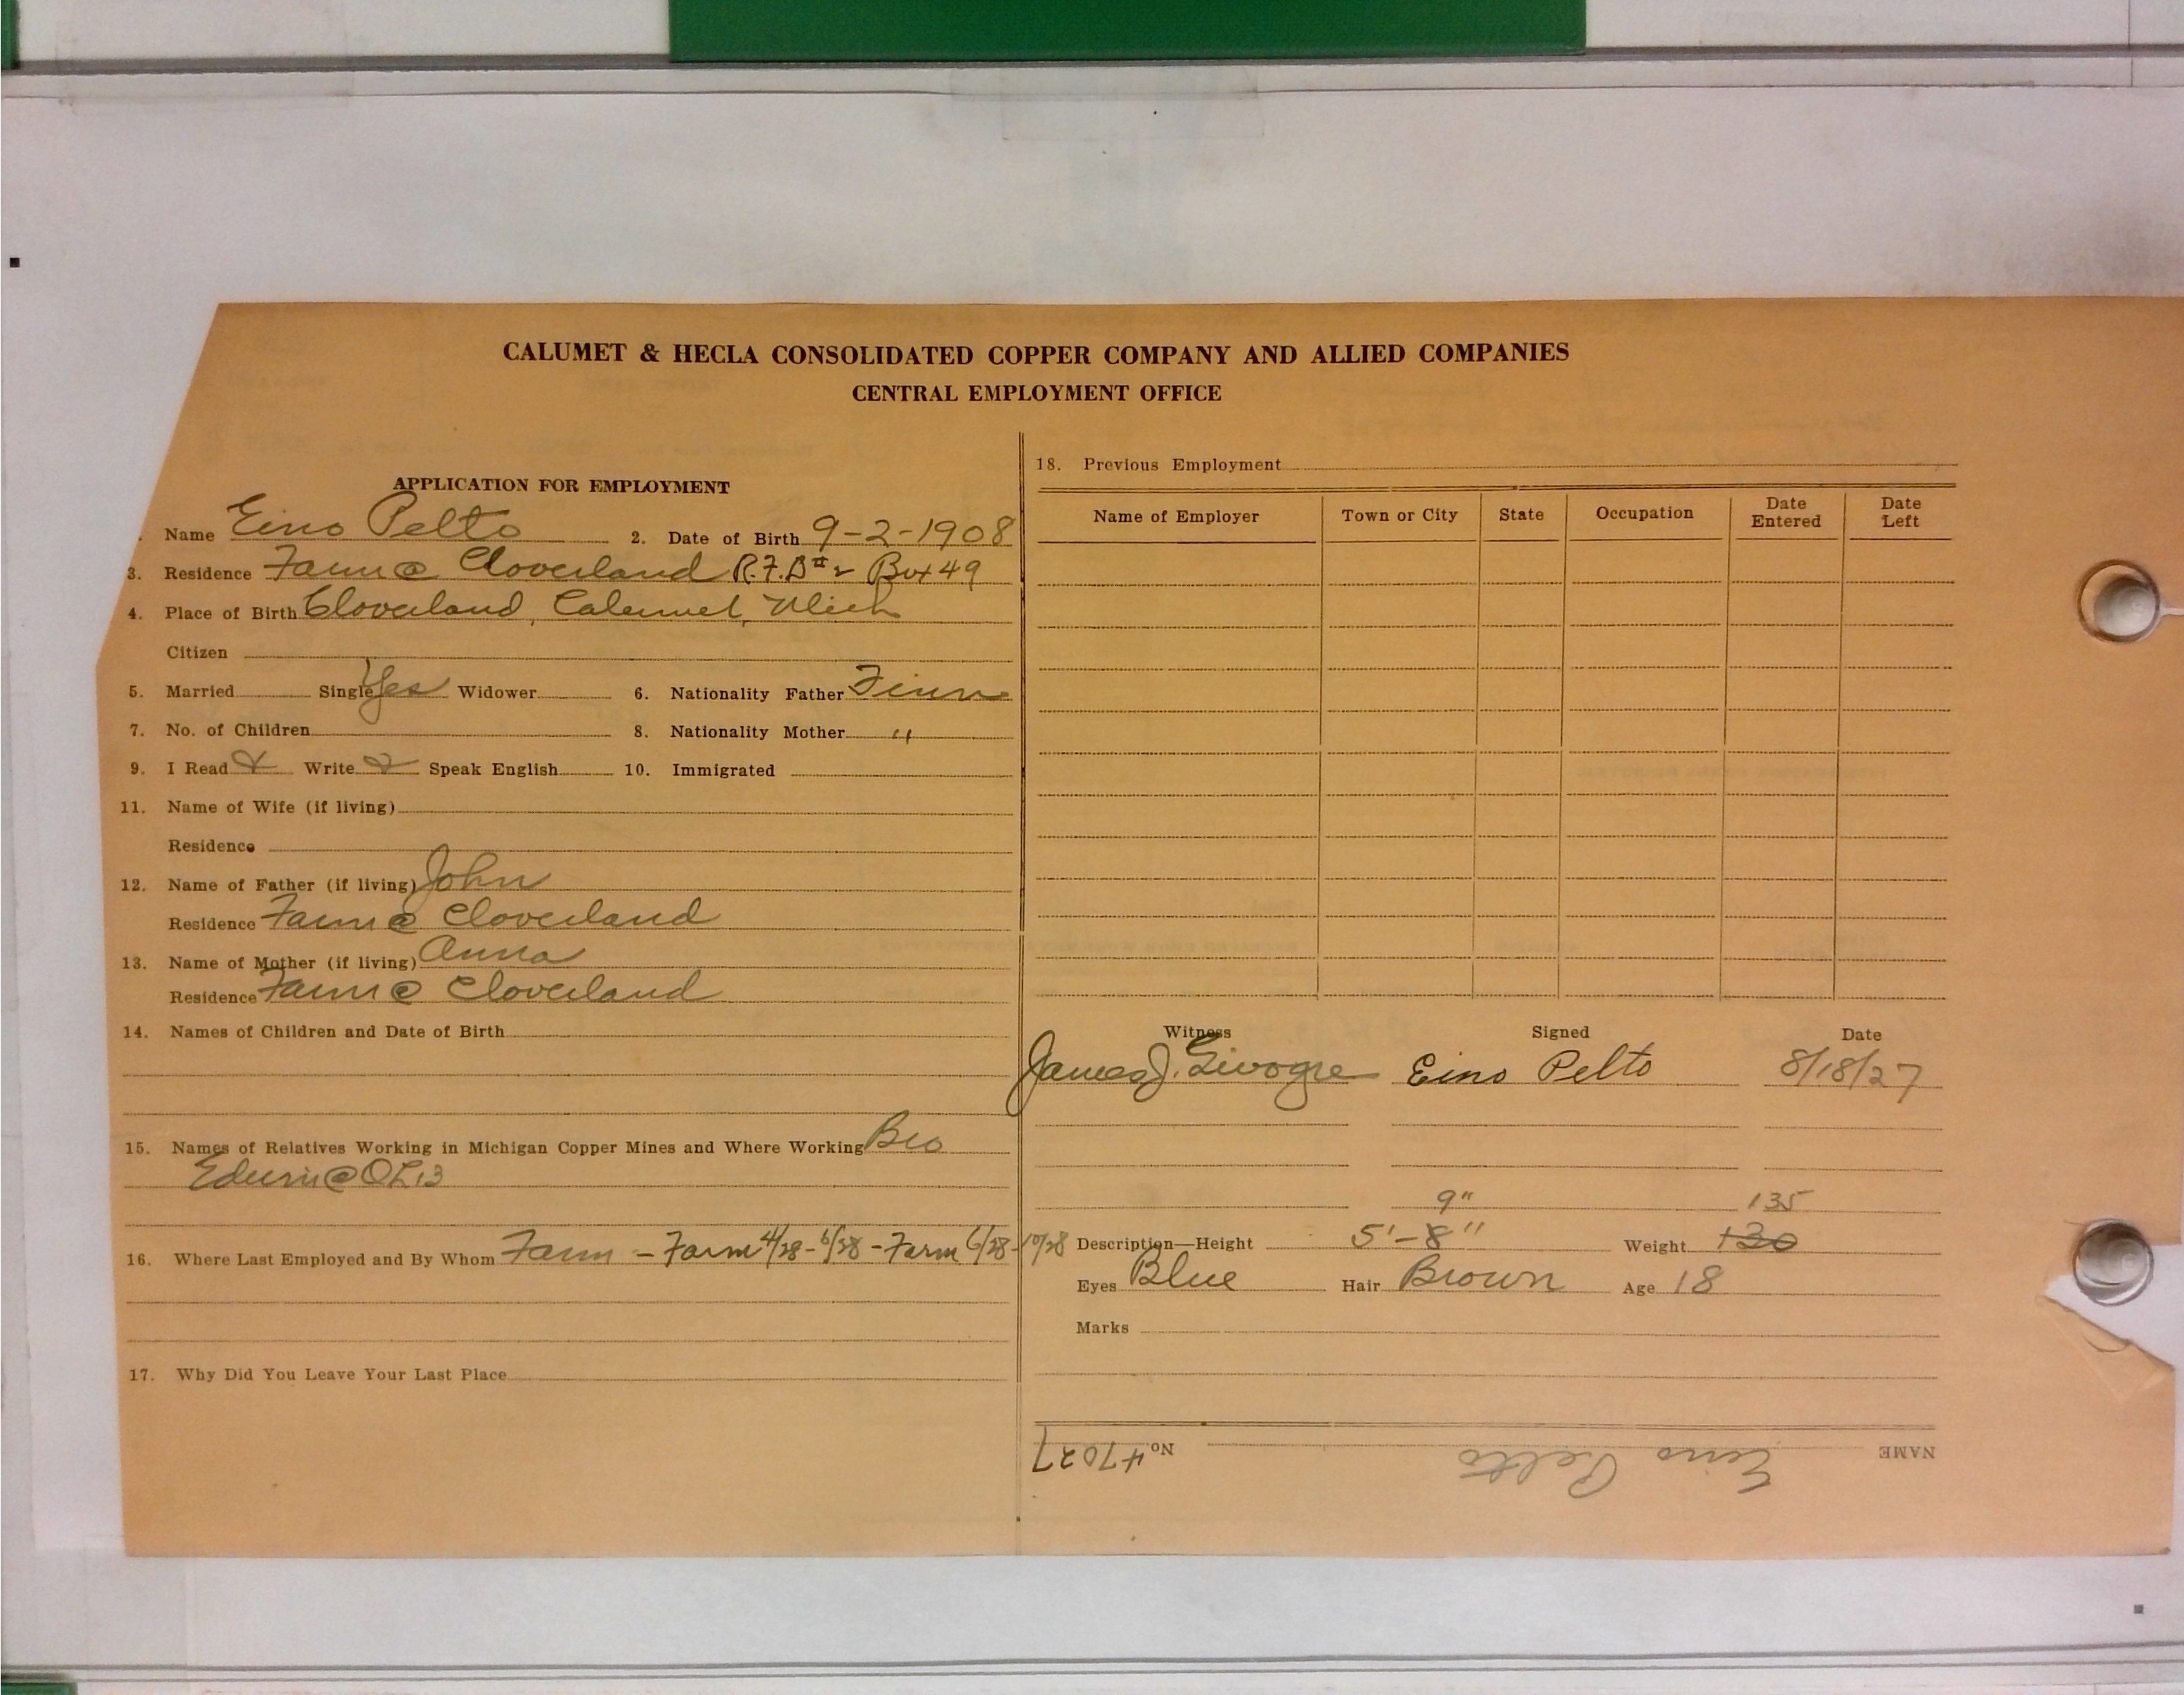 CALUMET & HECLA CONSOLIDATED COPPER COMPANY AND ALLIED COMPANIES
CENTRAL EMPLOYMENT OFFICE
APPLICATION FOR EMPLOYMENT
Name Eino Pelto 2. Date of Birth 9-2-1908
3. Residence Farm @ Cloverland R.F.D # 2 Box 49
4. Place of Birth Cloverland, Calumet, Mich
Citizen
5. Married Single Yes Widower 6. Nationality Father Finn
7. No. of Children 8. Nationality Mother "
9. I Read Write Speak English 10. Immigrated
11. Name of Wife (if living)
Residence
12. Name of Father (if living) John
Residence Farm @ Cloverland
13. Name of Mother (if living) Anna
Residence Farm @ Cloverland
14. Names of Children and Date of Birth
15. Names of Relatives Working in Michigan Copper Mines and Where Working Bro
Edwin @
16. Where Last Employed and By Whom Farm - Farm 4/28 - 6/28 - Farm 6/28 - 10/28
17. Why Did You Leave Your Last Place
18. Previous Employment
Name of Employer Town or City State Occupation Date Entered Date Left
Witness Signed Date
James J. Eino Pelto 8/18/27
9" 135
Description—Height 5'-8" Weight 130
Eyes Blue Hair Brown Age 18
Marks
NAME Eino Pelto No 47027